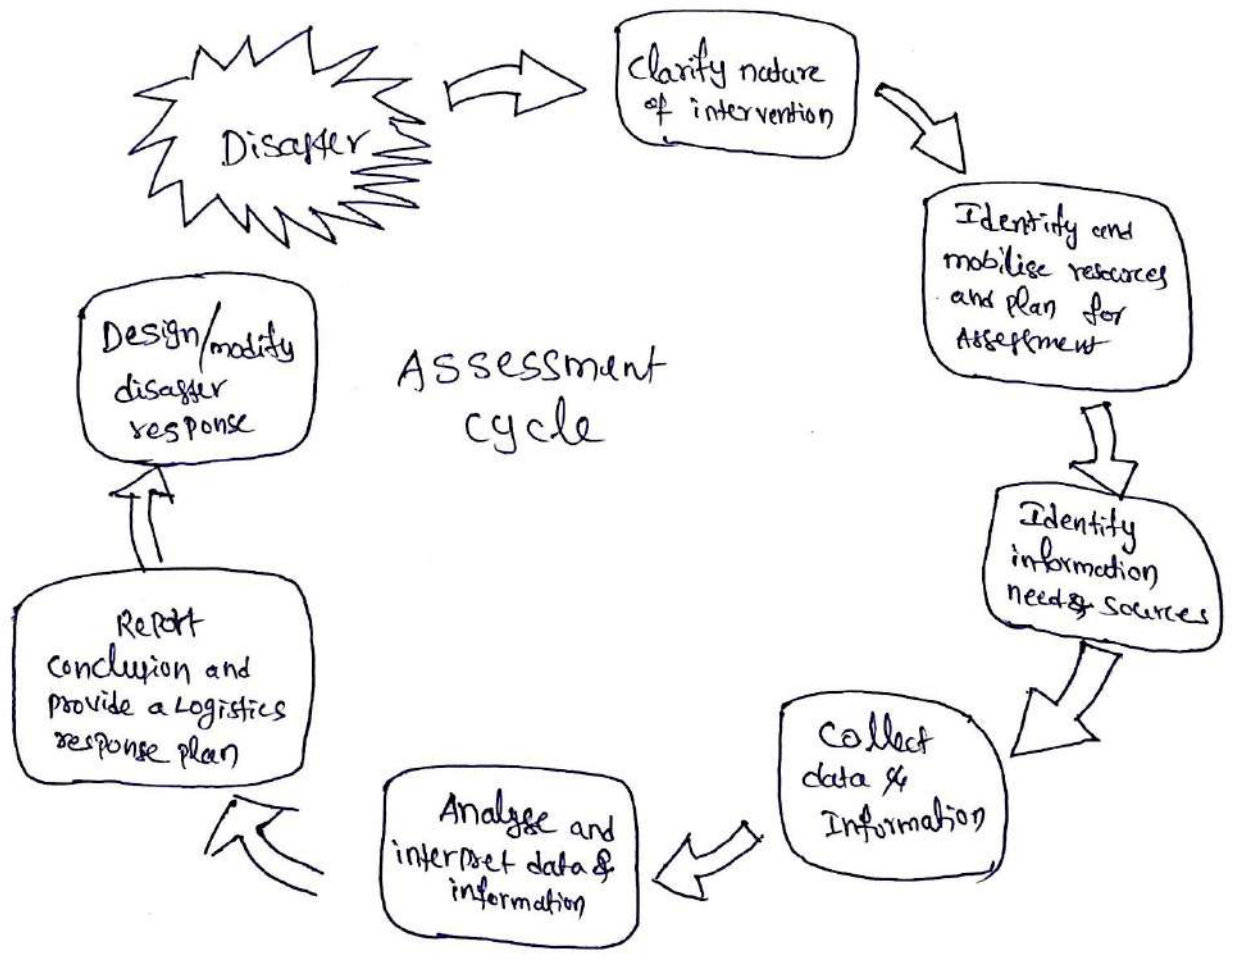 Disaster
Clarify nature
of intervention
Identify and
mobilise resources
and plan for
Assessment
Identify
information
need & sources
Collect
data &
Information
Analyse and
interpret data &
information
Report
conclusion and
provide a Logistics
response plan
Design/modify
disaster
response
Assessment
cycle